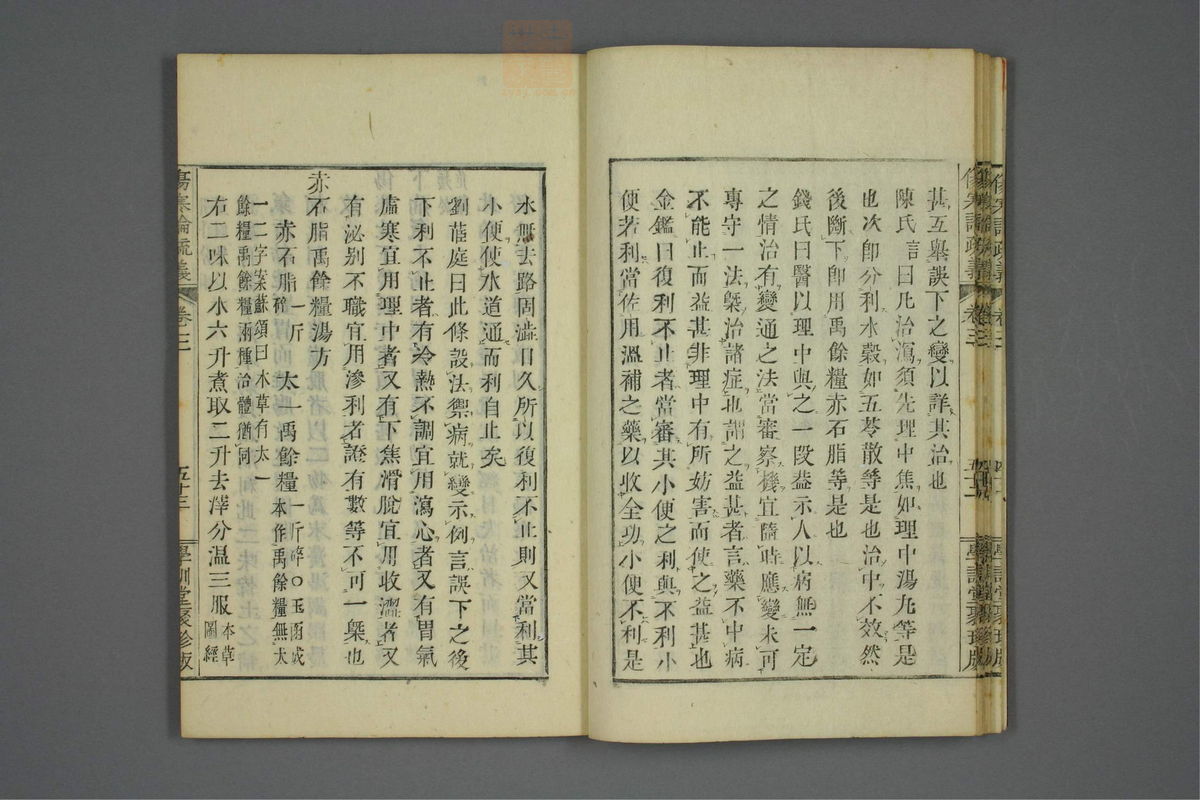 甚互舉誤下之變以詳其治也
陳氏言曰凡治瀉須先理中焦如理中湯丸等是
也次卽分利水穀如五苓散等是也治中不效然
後斷下卽用禹餘糧赤石脂等是也
錢氏曰醫以理中與之一段葢示人以病無一定
之情治有變通之法當審察機宜隨時應變未可
專守一法槩治諸症也謂之益甚者言藥不中病
不能止而益甚非理中有所妨害而使之益甚也
金鑑曰復利不止者當審其小便之利與不利小
便若利當佐用溫補之藥以收全功小便不利是
水無去路固澁日久所以復利不止則又當利其
小便使水道通而利自止矣
劉蒞庭曰此條設法禦病就變示例言誤下之後
下利不止者有冷熱不調宜用瀉心者又有胃氣
虛寒宜用理中者又有下焦滑脫宜用收澀者又
有泌別不職宜用滲利者證有數等不可一槩也
赤石脂禹餘糧湯方
赤石脂一斤碎 太一禹餘糧一斤碎○玉函成本作禹餘糧無太
一二字案蘇頌曰本草有太一
餘糧禹餘糧兩種治體猶同
右二味以水六升煮取二升去滓分温三服本草圖經
傷寒論疏義
卷三
五十三
學訓堂聚珍版